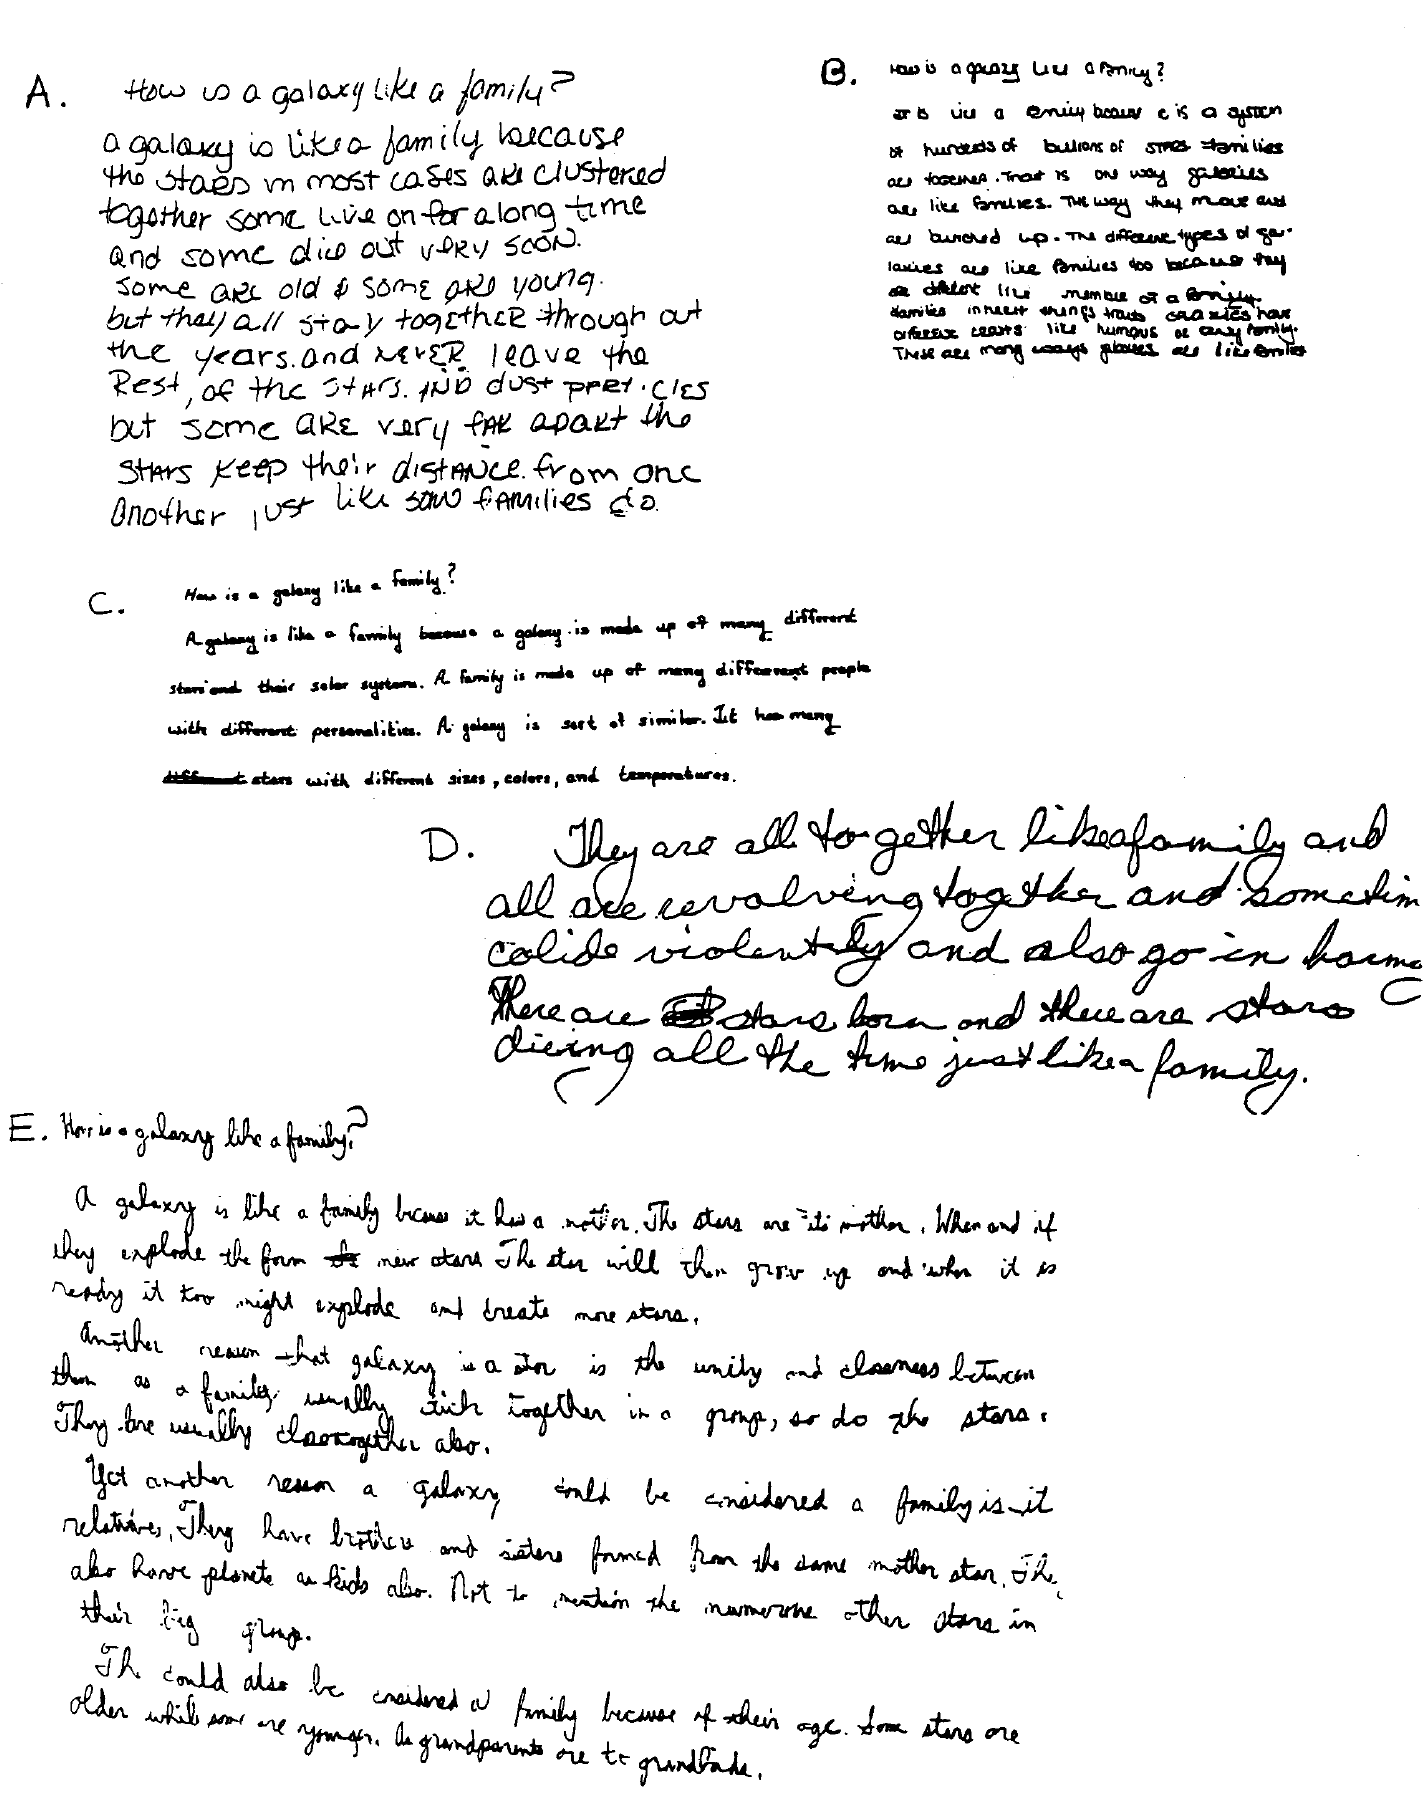 A. How is a galaxy like a family?
a galaxy is like a family because
the stars in most cases are clustered
together some live on for a long time
and some dice out very soon.
some are old & some are young.
but they all stay together through out
the years. and never leave the
Rest, of the stars. AND dust particles
but some are very far apart the
stars keep their distance. from one
another just like some families do.
B. How is a galaxy like a family?
It is like a family because it is a system
of hundreds of billions of stars families
are together. That is one way galaxies
are like families. The way they move and
are bunched up. The different types of ga-
laxies are like families too because they
are different like members of a family.
families inherit things traits galaxies have
different traits like humans or every family.
These are many ways galaxies are like families
C. How is a galaxy like a family?
A galaxy is like a family because a galaxy is made up of many different
stars and their solar systems. A family is made up of many differerent people
with different personalities. A galaxy is sort of similar. It has many
different stars with different sizes, colors, and temperatures.
D. They are all together like a family and
all are revolving together and sometim
colide violently and also go in harmo
There are stars born and there are stars
dieing all the time just like a family.
E. How is a galaxy like a family?
A galaxy is like a family because it has a mother. The stars are its mother. When and if
they explode the form new stars The star will then grow up and when it is
ready it too might explode and create more stars.
Another reason that galaxy is a star is the unity and closeness between
them as a family usually stick together in a group, so do the stars.
They are usually close together also.
Yet another reason a galaxy could be considered a family is it
relatives. They have brothers and sisters formed from the same mother star. The
also have planets as kids also. Not to mention the numerous other stars in
their big group.
Th could also be considered a family because of their age. Some stars are
older while some are younger. As grandparents are to grandkids.